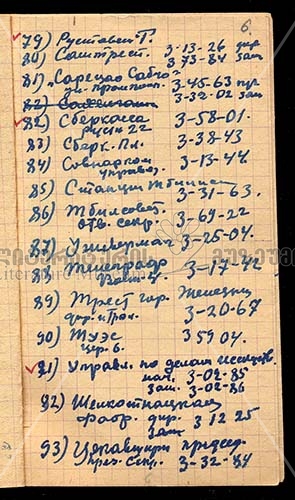 6.
79) Руставел. Т.
3-13-26 дир.
80) Сантрест. 3-73-84 зам.
81) „Сарецао Сабчо"
3-45-63 пр.
3-32-02 зам
82) Сберкасса
Русти 22 3-58-01.
83) Сберк. Пл. 3-38-43
84) Совнарком
управл. 3-13-44
85) Станция Тбилиси
3-31-63.
86) Тбилсовет.
отв. секр. 3-69-22
87) Универмаг 3-25-04.
88) 3-17-42
89) Трест гор.
3-20-67
90) ТуЭС
цер. 6. 3 59 04.
91) Управл. по делам искусств.
нач. 3-02-85
зам. 3-02-86
92) Шелкоткацкая
Фабр. дир. 3 12 25
зам
93) председ.
през. секр. 3-32-84
ლიტერატურის
მუზეუმი
Literature Museum